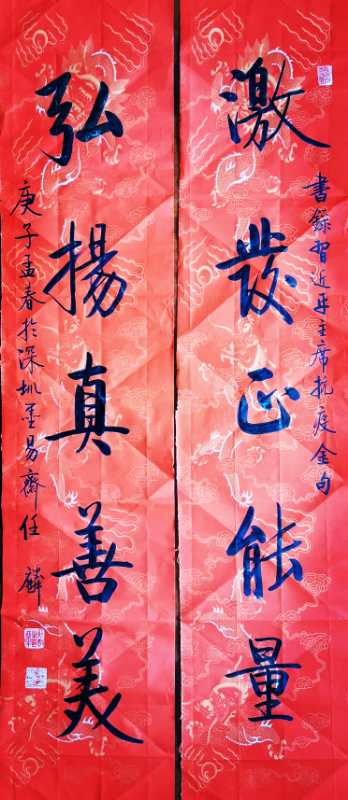 激發正能量
書録習近平主席抗疫金句
弘揚真善美
庚子孟春於深圳墨易齋任麟